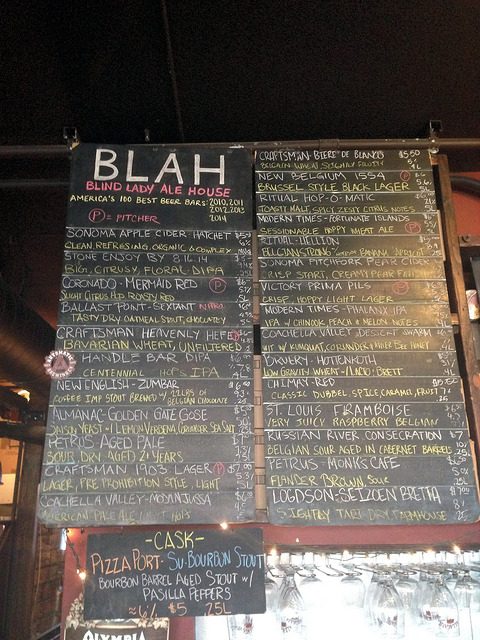 BLAH
BLIND LADY ALE HOUSE
AMERICA'S 100 BEST BEER BARS: 2010, 2011
2012, 2013
2014
P = PITCHER
SONOMA APPLE CIDER - HATCHET
CLEAN, REFRESING, ORGANIC & COMPLEX
STONE ENJOY BY 8.16.14
BIG, CITRUSY, FLORAL DIPA
CORONADO - MERMAID RED P
SLIGHT CITRUS HOP, ROASTY RED
BALLAST POINT - SEXTANT NITRO
TASTY DRY OATMEAL STOUT, CHOCOLATEY
CRAFTSMAN HEAVENLY HEFE
BAVARIAN WHEAT, UNFILTERED
HANDLE BAR DIPA
CENTENNIAL HOPS IPA
NEW ENGLISH - ZUMBAR
COFFEE IMP STOUT BREWED W/ 22LBS OF
BELGIAN CHOCOLATE
ALMANAC - GOLDEN GATE GOSE
SAISON YEAST + LEMON VERBENA, GINGER, SEA SALT
PETRUS AGED PALE
SOUR, DRY, AGED 2 YEARS
CRAFTSMAN 1903 LAGER P
LAGER, PRE PROHIBITION STYLE, LIGHT
COACHELLA VALLEY - MONJNJUSSA
AMERICAN PALE ALE HOPS
CRAFTSMAN - BIERE DE BLANCS $5.50
BELGIAN WHEAT, SLIGHTLY FRUITY
NEW BELGIUM 1554 P
BRUSSEL STYLE BLACK LAGER
RITUAL HOP-O-MATIC
TOASTY MALT SPICY ZESTY CITRUS NOTES
MODERN TIMES - FORTUNATE ISLANDS
SESSIONABLE HOPPY WHEAT ALE P
RITUAL - HELLION
BELGIAN STRONG BANANA APRICOT
SONOMA PITCHFORK PEAR CIDER
CRISP START, CREAMY PEAR FINISH
VICTORY PRIMA PILS P
CRISP HOPPY LIGHT LAGER
MODERN TIMES - PHALANX IPA
IPA W/ CHINOOK, PEACH & MELON NOTES
COACHELLA VALLEY DESERT SWARM
WIT W/ KUMQUAT, CORIANDER & HONEY
BREWERY - HOTTENROTH
LOW GRAVITY WHEAT - LACTO & BRETT
CHIMAY - RED
CLASSIC DUBBEL, SPICE, CARAMEL, FRUIT
ST. LOUIS FRAMBOISE
VERY JUICY RASPBERRY BELGIAN
RUSSIAN RIVER CONSECRATION
BELGIAN SOUR AGED IN CABERNET BARRELS
PETRUS - MONK'S CAFE
FLANDER BROWN SOUR
LOGDSON - SEIZOEN BRETTA
SLIGHTLY TART DRY FARMHOUSE
-CASK-
PIZZA PORT - SU-BOURBON STOUT
BOURBON BARREL AGED STOUT W/
PASILLA PEPPERS
≈6% $5 25L
OLYMPIA